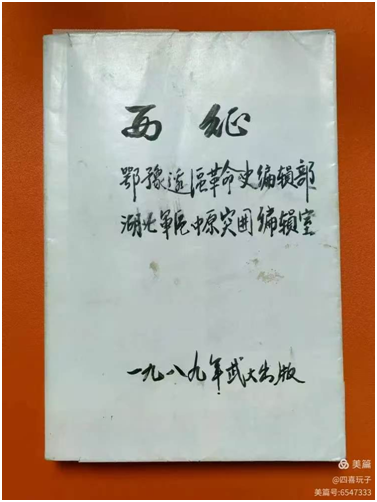 西征
鄂豫边区革命史编辑部
湖北军区中原突围编辑室
一九八九年武大出版
美篇
@四喜玩子
美篇号:6547333